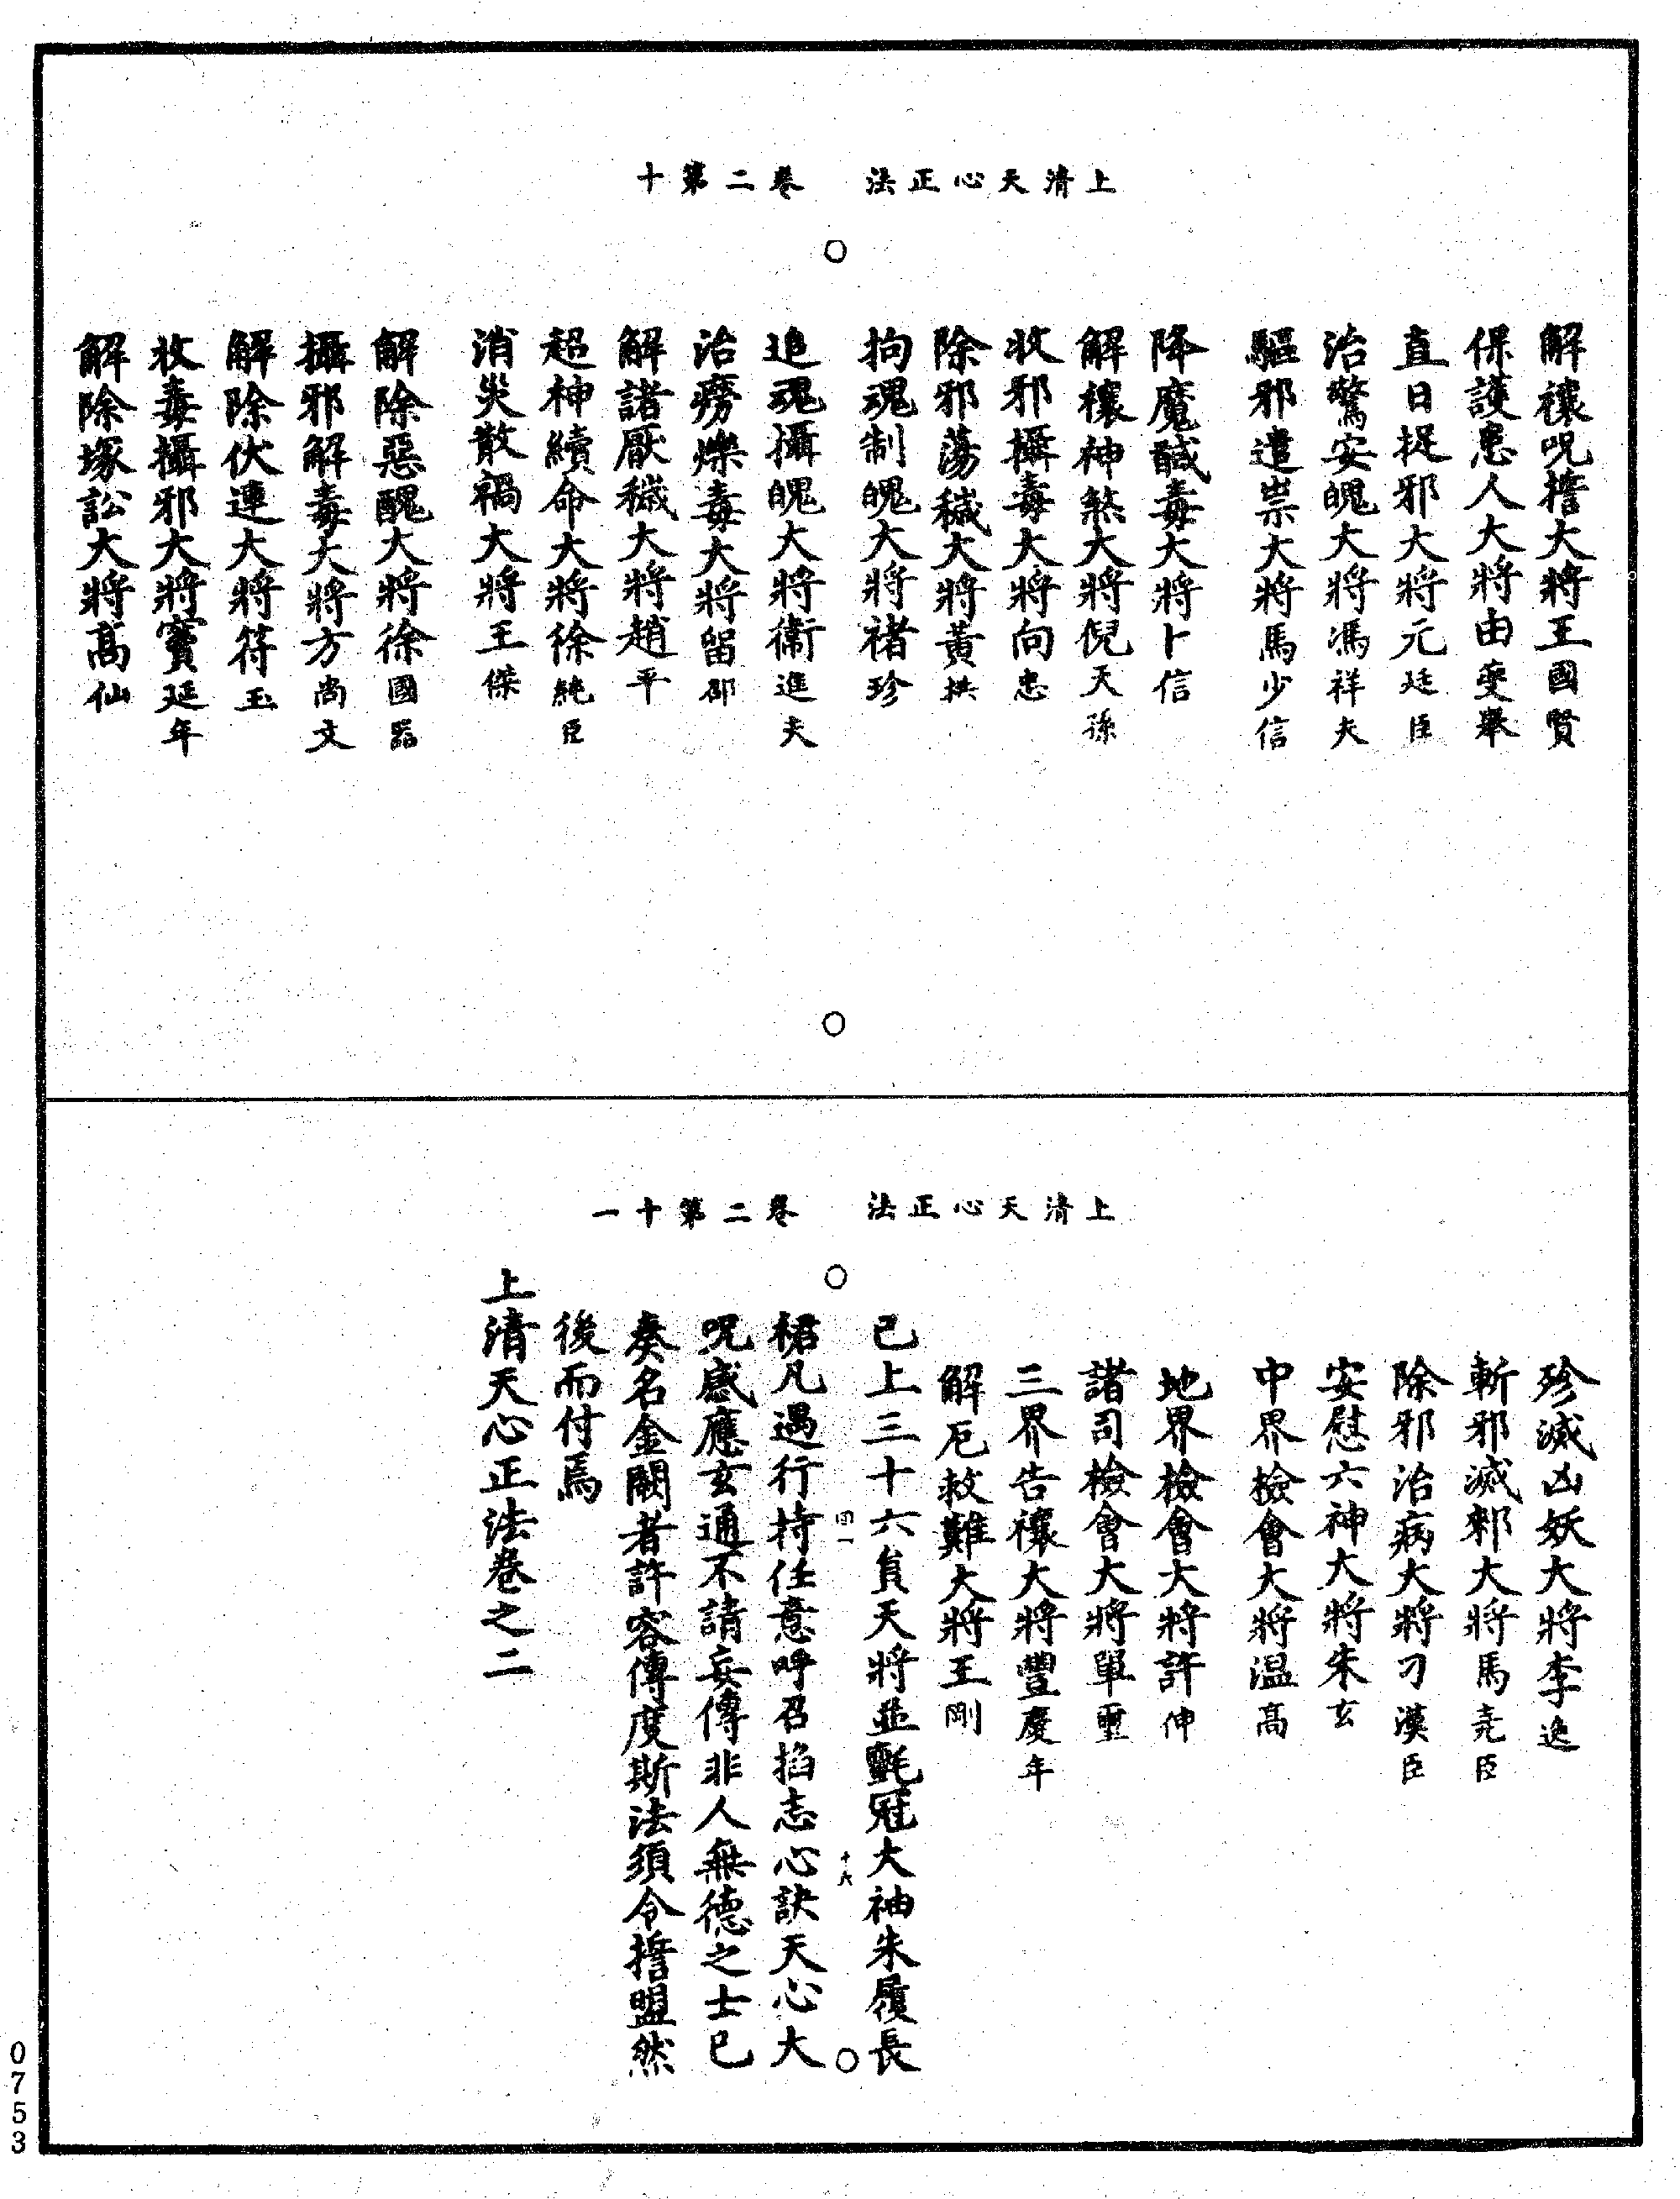 上清天心正法　卷二第十
解禳呪擔大將王國賢
保護患人大將由夔舉
直日捉邪大將元廷臣
治驚安魄大將馮祥夫
驅邪遣祟大將馬少信
降魔馘毒大將卜信
解禳神煞大將倪天孫
收邪攝毒大將向忠
除邪蕩穢大將黃拱
拘魂制魄大將褚珍
追魂攝魄大將衞進夫
治癆爍毒大將留邵
解諸厭穢大將趙平
超神續命大將徐純臣
消災散禍大將王傑
解除惡醜大將徐國器
攝邪解毒大將方尚文
解除伏連大將符玉
收毒攝邪大將竇延年
解除塚訟大將髙仙
上清天心正法　卷二第十一
殄滅凶妖大將李逸
斬邪滅邪大將馬堯臣
除邪治病大將刁漢臣
安慰六神大將朱玄
中界檢會大將温髙
地界檢會大將許伸
諸司檢會大將單璽
三界告禳大將豐慶年
解厄救難大將王剛
已上三十六員天將並氎冠大袖朱履長
裙凡遇行持任意呼召掐志心訣天心大
呪感應玄通不請妄傳非人無德之士已
奏名金闕者許容傳度斯法須令擔盟然
後而付焉
上清天心正法卷之二
四一
十六
0753